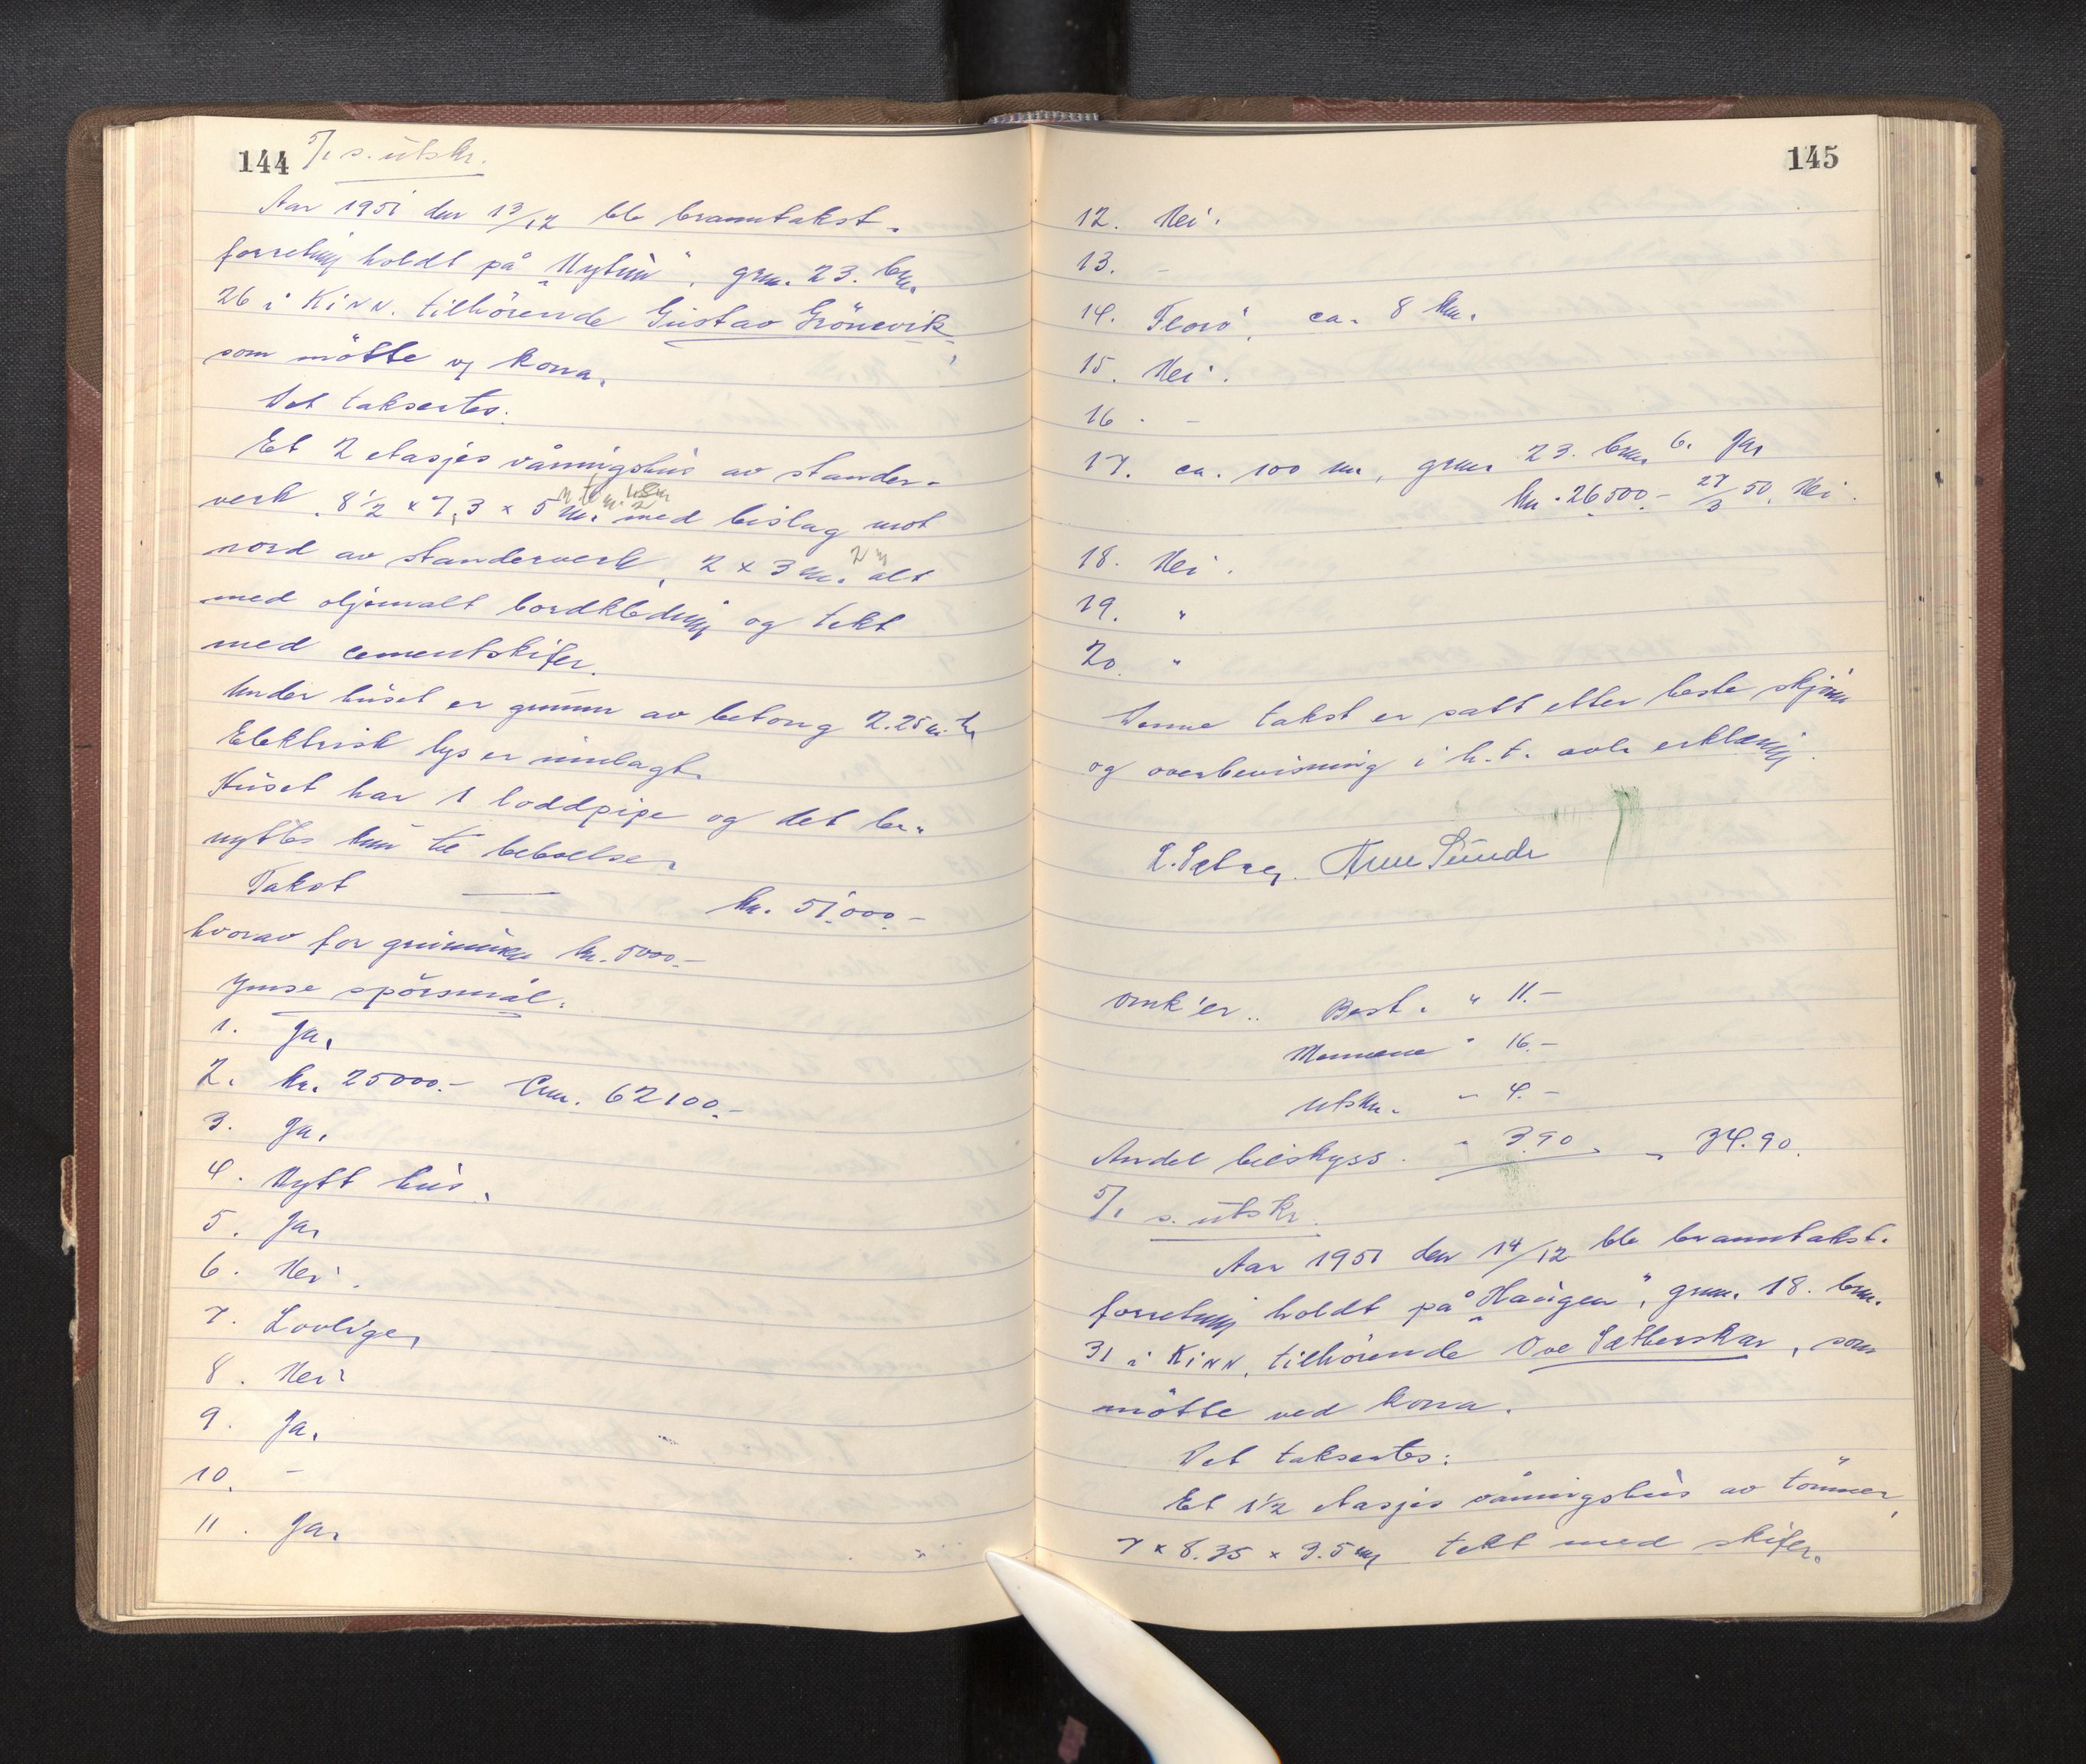 144 5/1 s. utskr.
Aar 1951 den 13/12 ble branntakst-
forretning holdt på "Nytun", grnr. 23. brnr.
26 i Kinn. tilhörende Gustav Grönevik,
som mötte v/ kona.
Det taksertes:
Et 2 etasjes våningshus av stander-
verk. 8 1/2 x 7,3 x 5 m. med bislag mot
nord av standerverk, 2 x 3 m. 2 m alt
med oljemalt bordkledning og tekt
med cementskifer.
Under huset er grunnm av betong 2.25 m.
Elektrisk lys er innlagt.
Huset har 1 loddpipe og det be-
nyttes kun til beboelse.
Takst — kr. 51.000.-
hvorav for grunnmur kr. 5000.-
Ymse spörsmål.
1. Ja.
2. kr. 25000.- Cnr. 62100.-
3. Ja.
4. Nytt hus.
5. Ja
6. Nei.
7. Lovlige.
8. Nei
9. Ja.
10. -
11. Ja.
145
12. Nei.
13. -
14. Florö, ca. 8 km.
15. Nei.
16. -
17. ca. 100 m, grnr 23. brnr 6. Ja
kr. 26500.- 27/3 50. Nei.
18. Nei.
19. "
20. "
Denne takst er satt etter beste skjönn
og overbevisning i h.t. avlr erklæring.
L. Sætrey. Arne Sunde
omk'er.. Best. " 11.-
Mennene " 16.-
utskr. " 4.-
Andel bilskyss. " 3.90 " 34.90.
5/1 s. utskr.
Aar 1951 den 14/12 ble branntakst-
forretning holdt på "Haugen", grnr. 18. brnr.
31 i Kinn, tilhörende Ove Sætherskar, som
mötte ved kona.
Det taksertes:
Et 1 1/2 etasjes våningshus av tömmer,
7 x 8.35 x 3.5 m tekt med skifer.